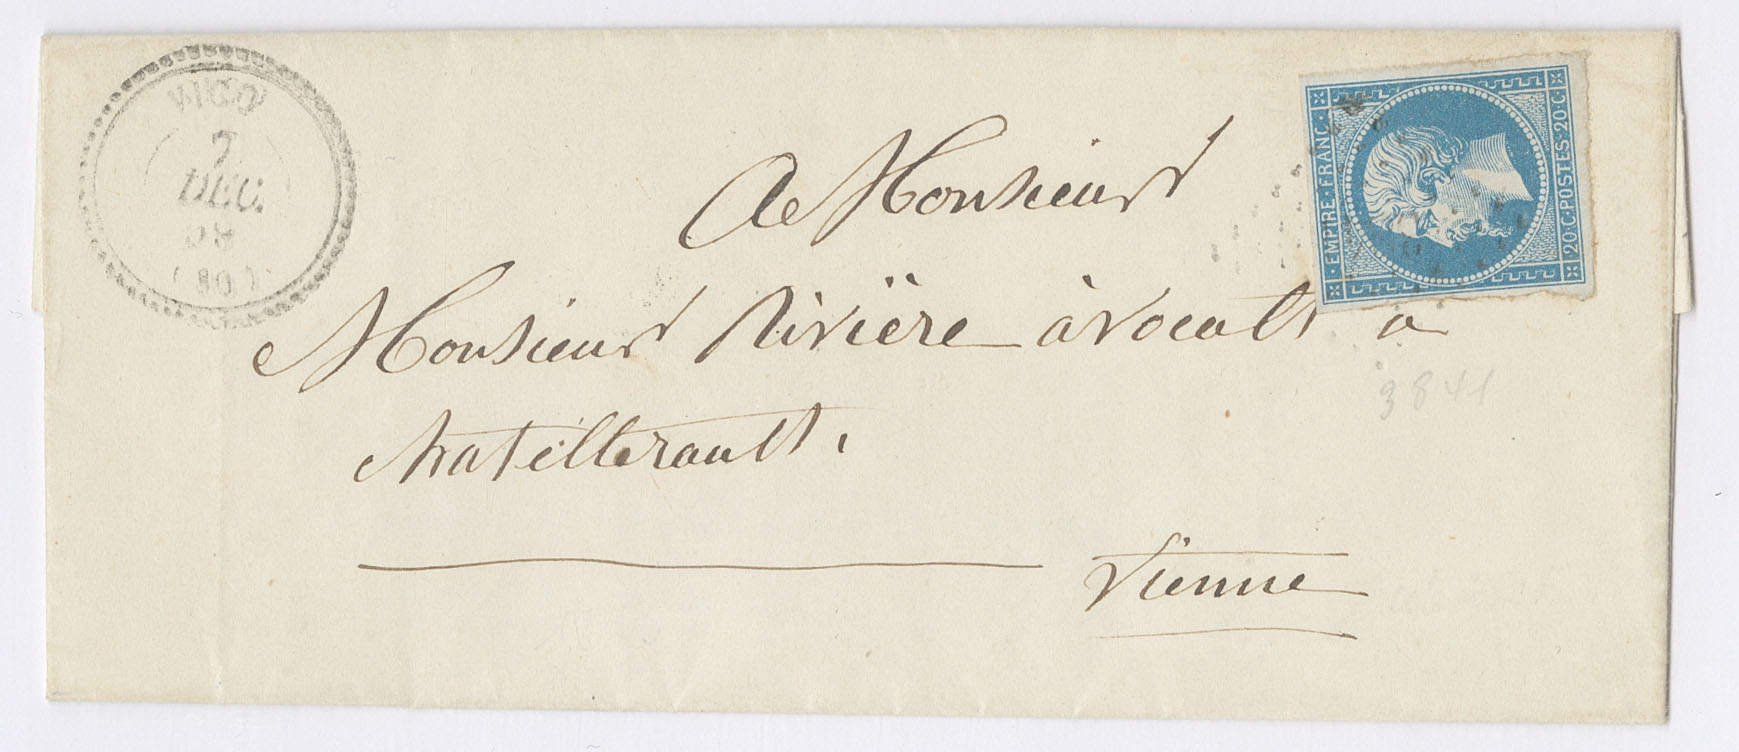 VICO
7
DEC.
58
(80)
A Monsieur
Monsieur Rivière avocatt a
chatellerault.
Vienne
EMPIRE · FRANC ·
20 · C · POSTES · 20 · C ·
3841